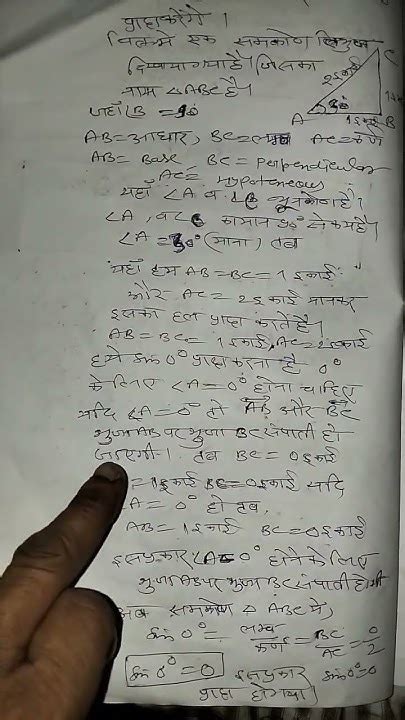 प्राप्त करेंगे ।
चित्र में एक समकोण त्रिभुज
दिया गया है। जिसका
नाम △ABC है।
C
2 इकाई
A 30° 1 इकाई B
जहाँ ∠B = 90
AB = आधार, BC = लम्ब AC = कर्ण
AB = Base BC = perpendicular
AC =
यहाँ ∠A व ∠C न्यूनकोण है।
∠A, व ∠C का मान 90° से कम है।
∠A = 30° (माना) तब
यहाँ हम AB = BC = 1 इकाई
और AC = 2 इकाई मानकर
इसका हल प्राप्त करते हैं।
AB = BC = 1 इकाई, AC = 2 इकाई
हमें Sin 0° प्राप्त करना है 0°
के लिए ∠A = 0° होना चाहिए
यदि ∠A = 0° हो AB और BC
भुजा AB पर भुजा BC संपाती हो
जाएगी । तब BC = 0 इकाई
= 1 इकाई BC = 0 इकाई यदि
A = 0° हो तब,
AB = 1 इकाई BC = 0 इकाई
इस प्रकार ∠A = 0° होने के लिए
भुजा AB पर भुजा BC संपाती होगी
अब समकोण △ ABC में,
Sin 0° = लम्ब/कर्ण = BC/AC = 0/2
Sin 0° = 0 इस प्रकार Sin 0° = 0
प्राप्त हो गया